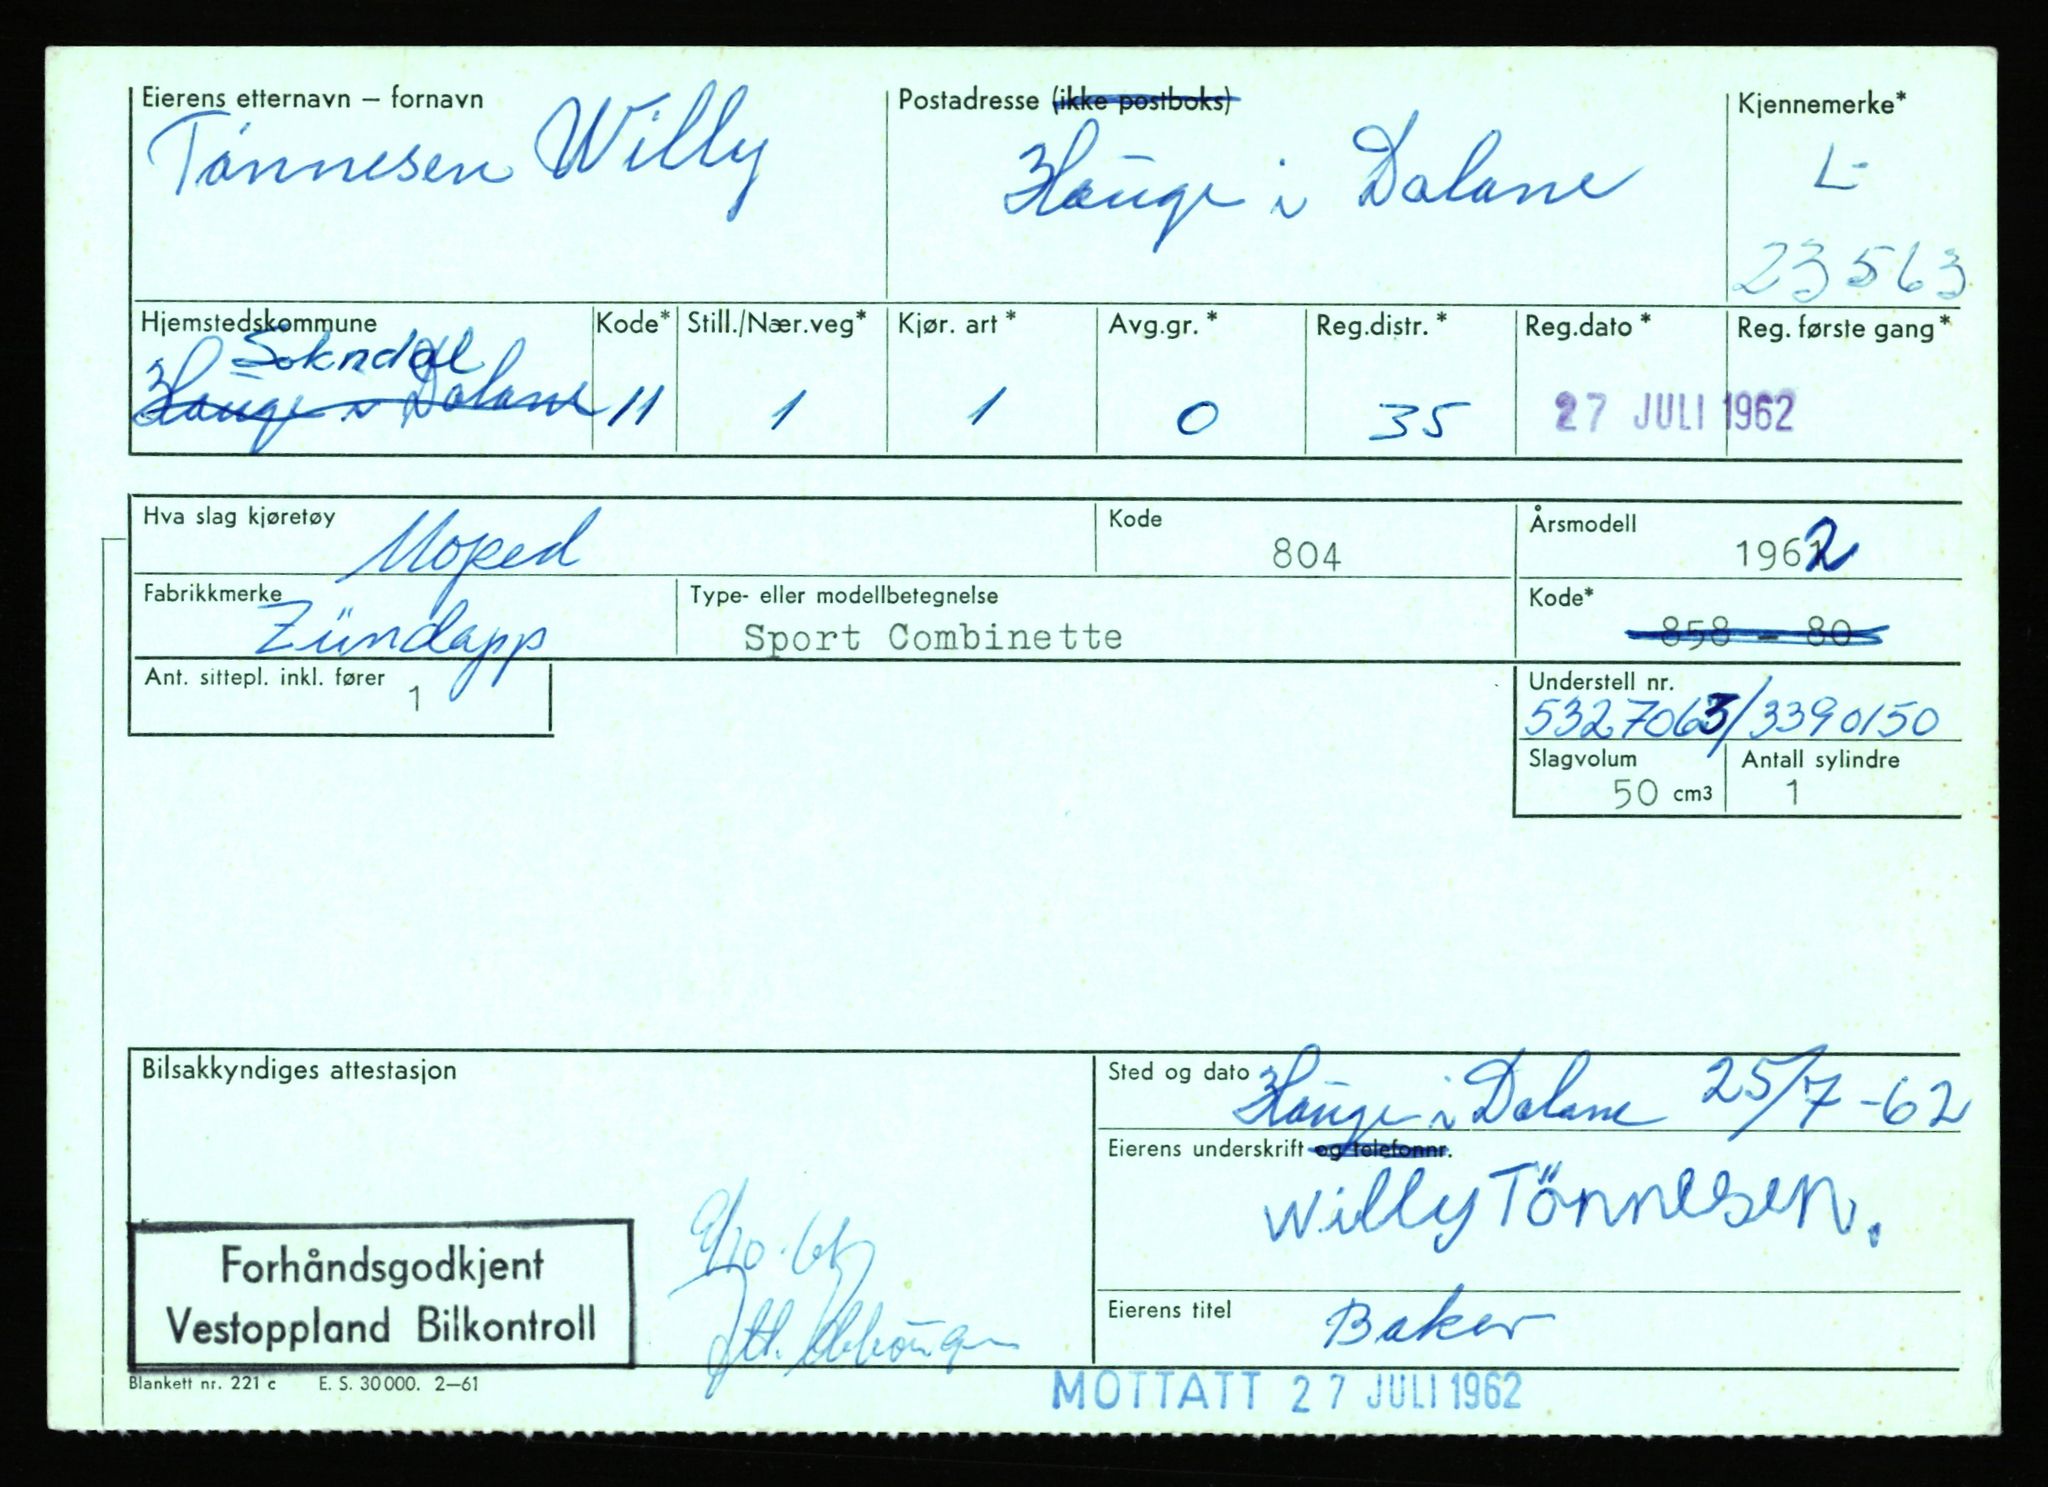 Eierens etternavn – fornavn
Tönnesen Willy
Postadresse (ikke postboks)
Hauge i Dalane
Kjennemerke*
L-
23563
Hjemstedskommune
Sokndal
Hauge i Dalane
Kode*
11
Still./Nær.veg*
1
Kjør. art *
1
Avg.gr. *
0
Reg.distr. *
35
Reg.dato *
27 JULI 1962
Reg. første gang*
Hva slag kjøretøy
Moped
Kode
804
Årsmodell
1962
Fabrikkmerke
Zündapp
Type- eller modellbetegnelse
Sport Combinette
Kode*
858 - 80
Ant. sittepl. inkl. fører
1
Understell nr.
5327063/3390150
Slagvolum
50 cm3
Antall sylindre
1
Bilsakkyndiges attestasjon
Sted og dato
Hauge i Dalane 25/7-62
Eierens underskrift og telefonnr.
Willy Tönnesen.
Forhåndsgodkjent
Vestoppland Bilkontroll
Eierens titel
Baker
Blankett nr. 221 c E. S. 30000. 2–61
MOTTATT 27 JULI 1962